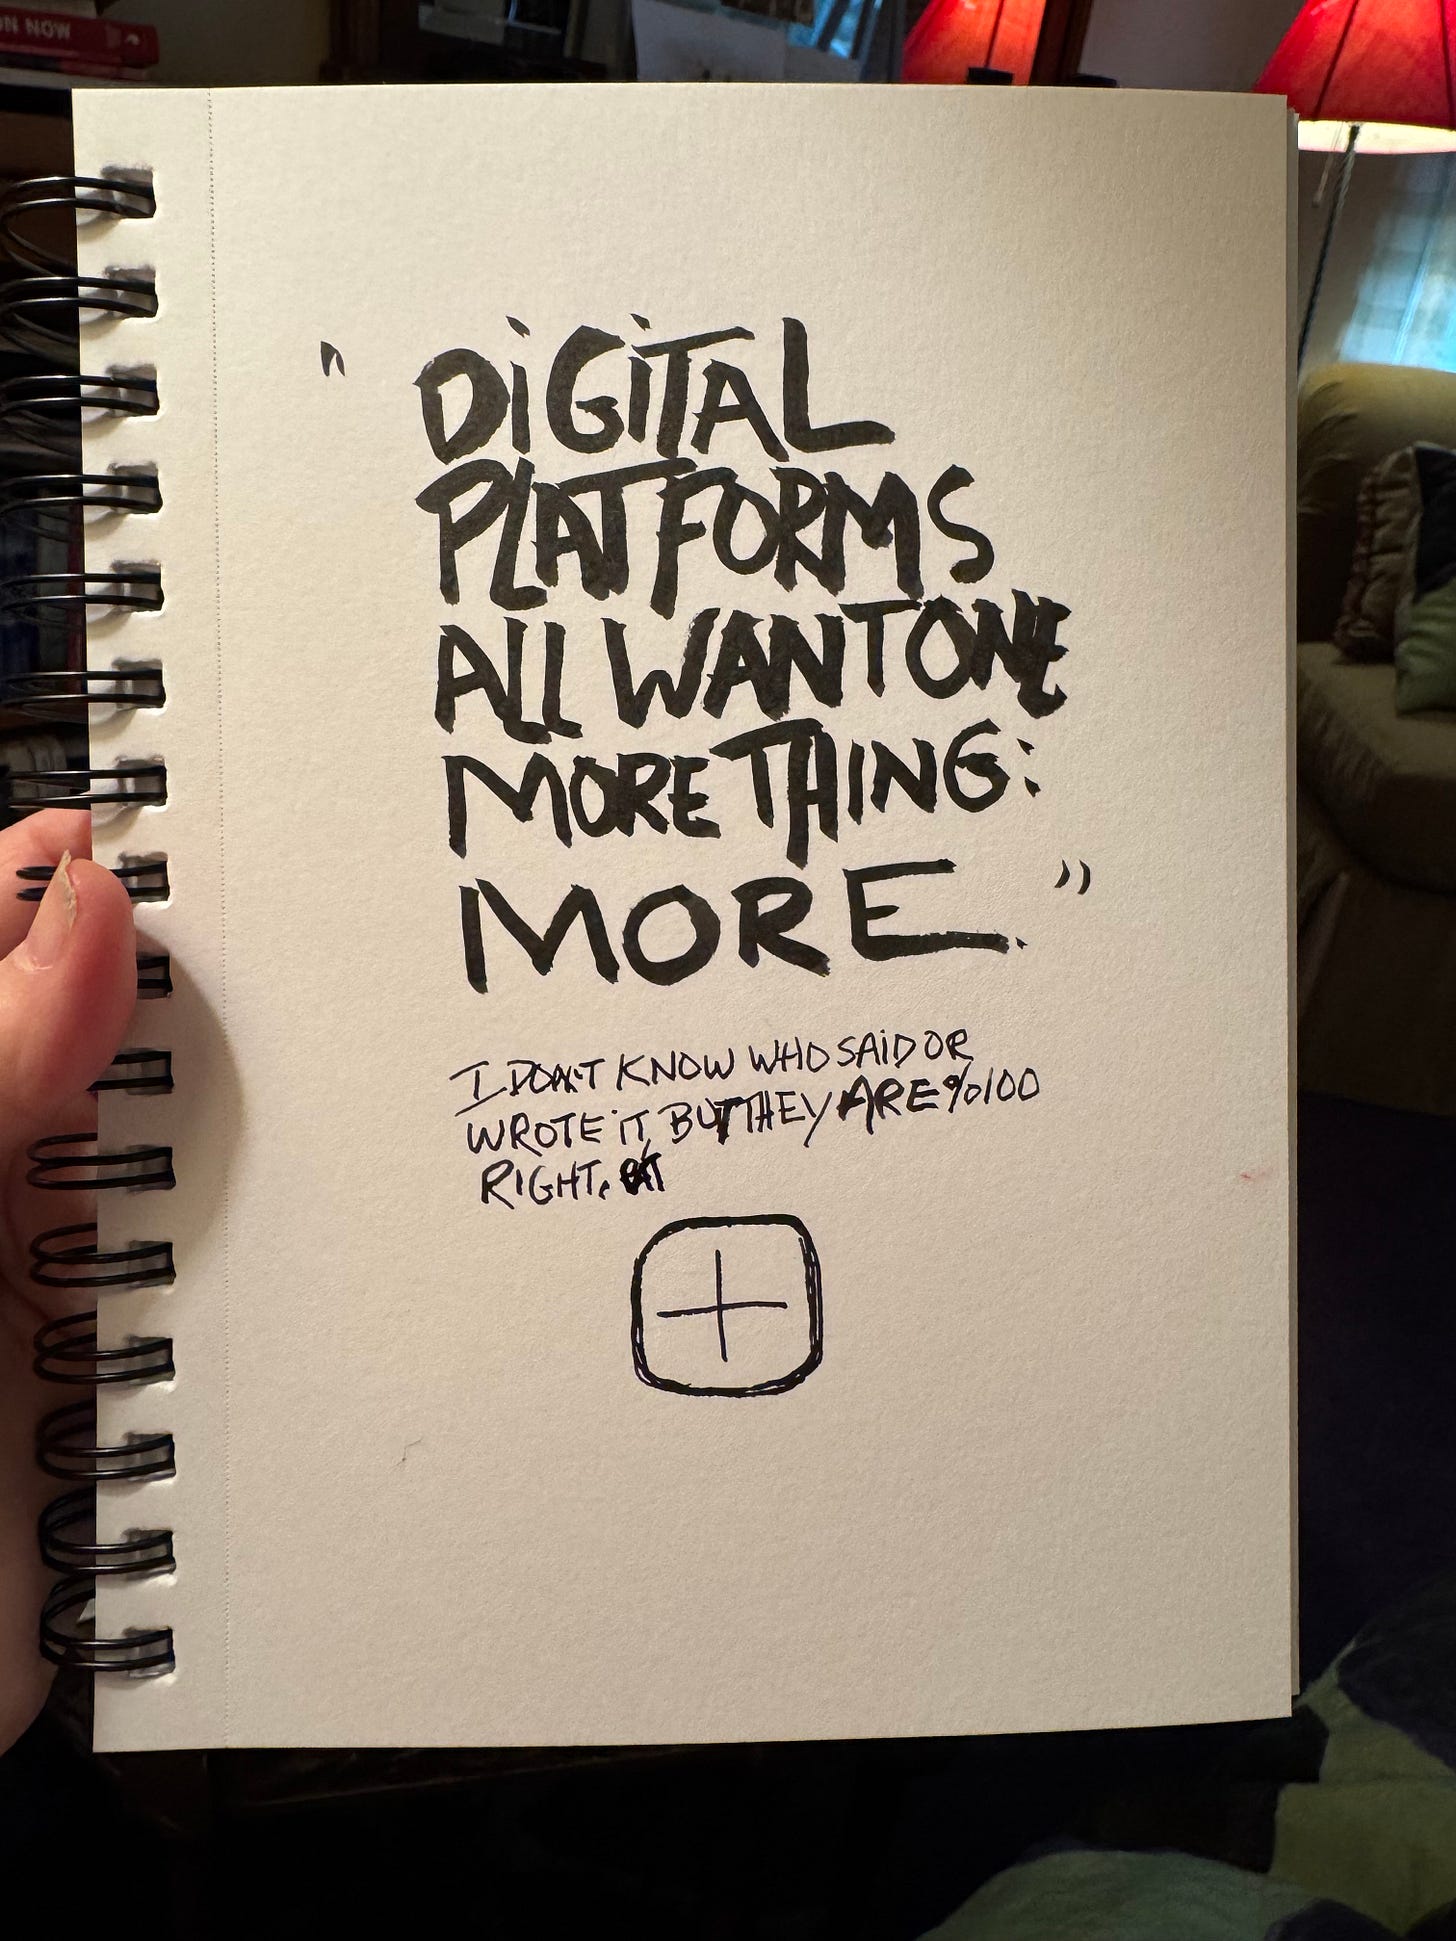 ON NOW
" DiGiTAL
PLATFORMS
ALL WANT ONE
MORE THING:
MORE. "
I DON'T KNOW WHO SAiD OR
WROTE iT, BUT THEY ARE %100
RIGHT.